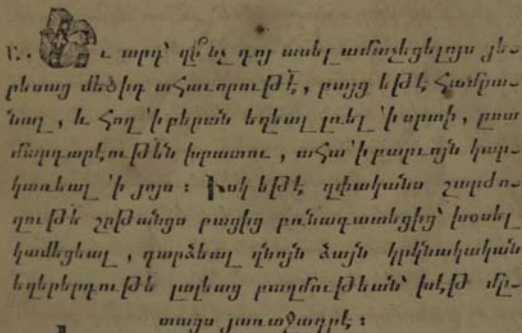 Եւ արդ՝ զի՞նչ գոյ ասել ամաչեցելոյս յե֊
րեսաց մեծիդ ահաւորութէ, բայց եթէ համրա֊
նալ, և հող ՚ի բերան եղեալ լռել ՚ի սրտի, ըստ
մարգարէութեն խրատու, ահա ՚ի բարւոյն կար֊
կառեալ ՚ի յոյս։ Իսկ եթէ զփականս շարժո֊
ղութե շրթանցս բացից բռնադատեցից՝ խօսել
կամեցեալ, դարձեալ զնոյն ձայն կրկնակական
եղերերգութե լալեաց բազմութեան՝ խէթ մը֊
տացս յառաջադրէ։